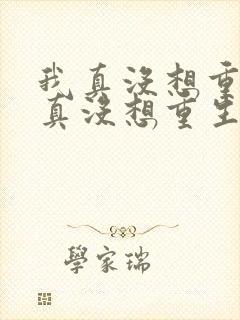 我真没想重
真没想重生
學家瑞